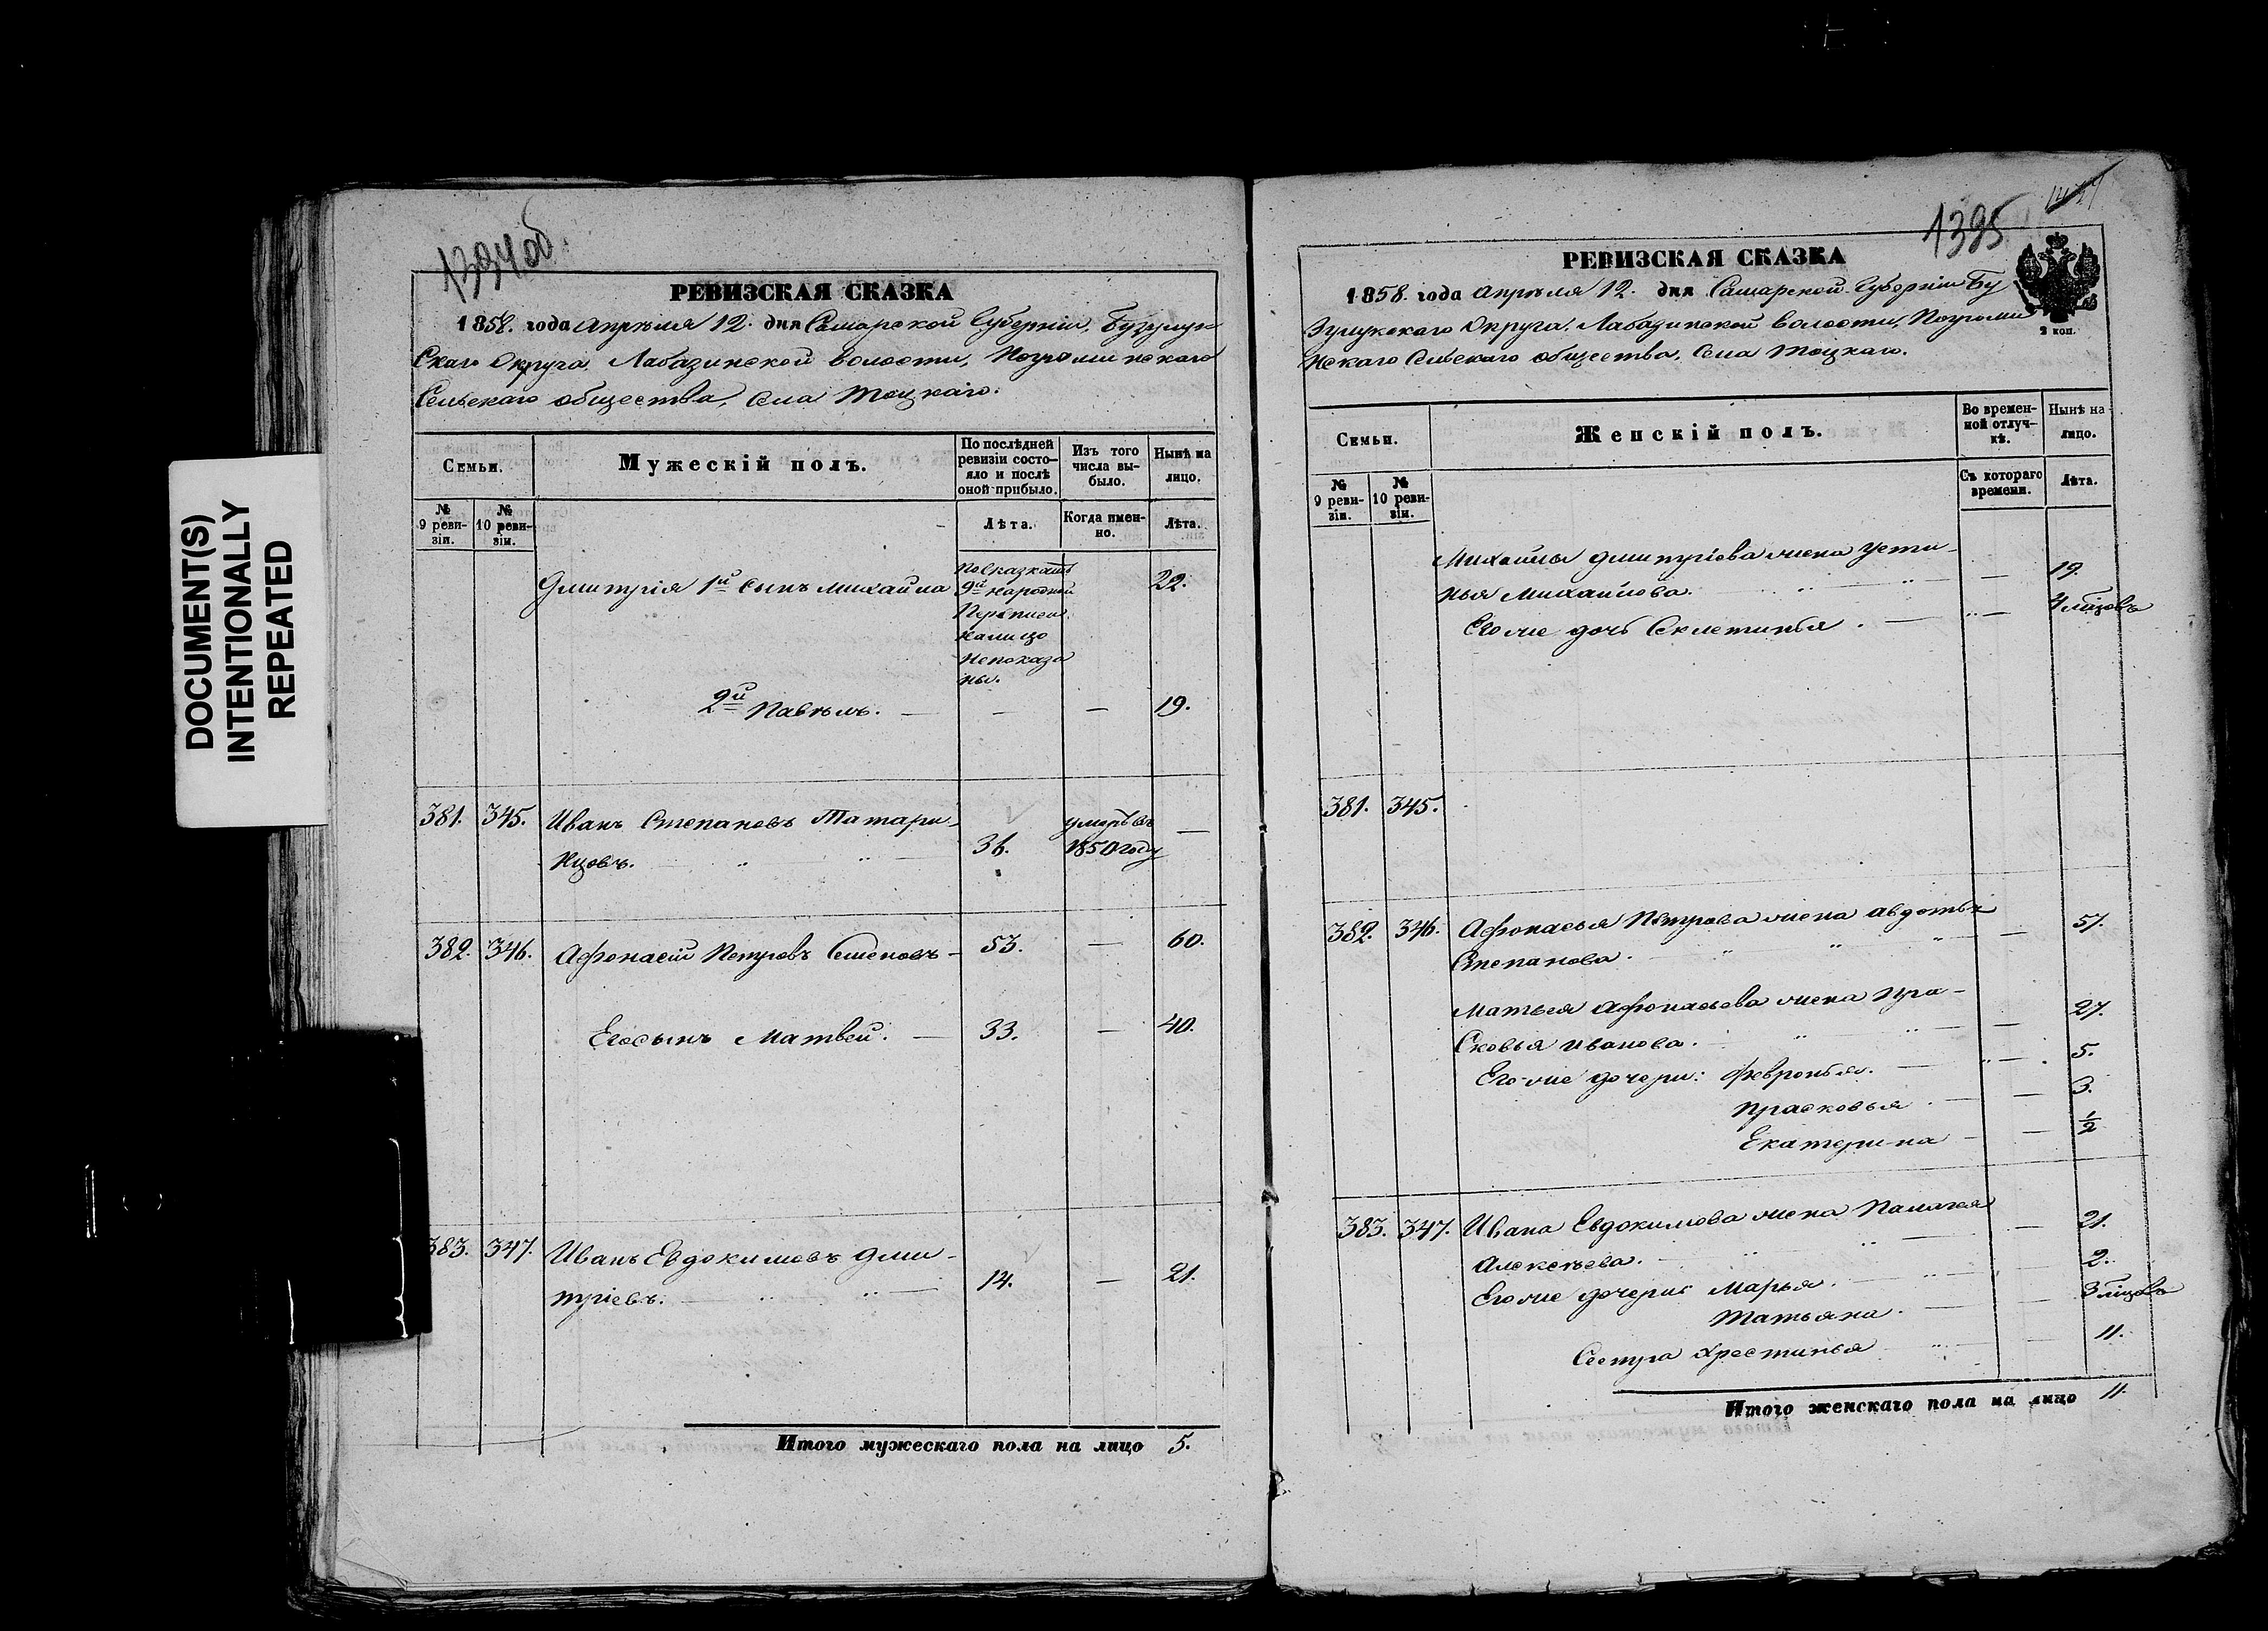 DOCUMENT(S)
INTENTIONALLY
REPEATED
1394об.
РЕВИЗСКАЯ СКАЗКА
1858. года Апрѣля 12. дня Самарской Губерніи, Бузулук-
скаго Округа, Лабазинской волости, Погроминскаго
Сельскаго общества, Села Тоцкаго.
Семьи.
Мужескій полъ.
По послѣдней ревизіи состояло и послѣ оной прибыло.
Изъ того числа выбыло.
Нынѣ на лицо.
№ 9 ревизіи.
№ 10 ревизіи.
Лѣта.
Когда именно.
Лѣта.
Дмитрія 1й сынъ Михайла 22.
9й народной
Переписи
налицо
непоказа
ны.
2й Павелъ. — — — 19.
381. 345. Иванъ Степановъ Татари- умеръ въ —
нцовъ. 36. 1850 году
382. 346. Афонасій Петровъ Семеновъ — 53. — 60.
Его сынъ Матвей. — 33. — 40.
383. 347. Иванъ Евдокимовъ Дми-
тріевъ. 14. — 21.
Итого мужескаго пола на лицо 5.
1395
РЕВИЗСКАЯ СКАЗКА
2 коп.
1858. года Апрѣля 12. дня Самарской Губерніи Бу
зулукскаго Округа, Лабазинской волости, Погроми
нскаго Сельскаго общества, Села Тоцкаго.
Семьи.
Женскій полъ.
Во временной отлучкѣ.
Нынѣ на лицо.
№ 9 ревизіи.
№ 10 ревизіи.
Съ котораго времени.
Лѣта.
Михайлы Дмитріева жена Усти-
нья Михайлова. — 19.
Его же дочь Секлетинья. — — 4 мѣсцовъ
381. 345.
382. 346. Афонасья Петрова жена Авдотья
Степанова. — 57.
Матвея Афонасьева жена Пра-
сковья Иванова. — 27.
Его же дочери: Февронья. — — 5.
Прасковья. — — 3.
Екатерина — — 1/2
383. 347. Ивана Евдокимова жена Палагея
Алексѣева. — 21.
Его же дочери Марья. — 2.
Татьяна. — — 3 мѣсцовъ
Сестра Хрестинья — 11.
Итого женскаго пола на лицо 11.